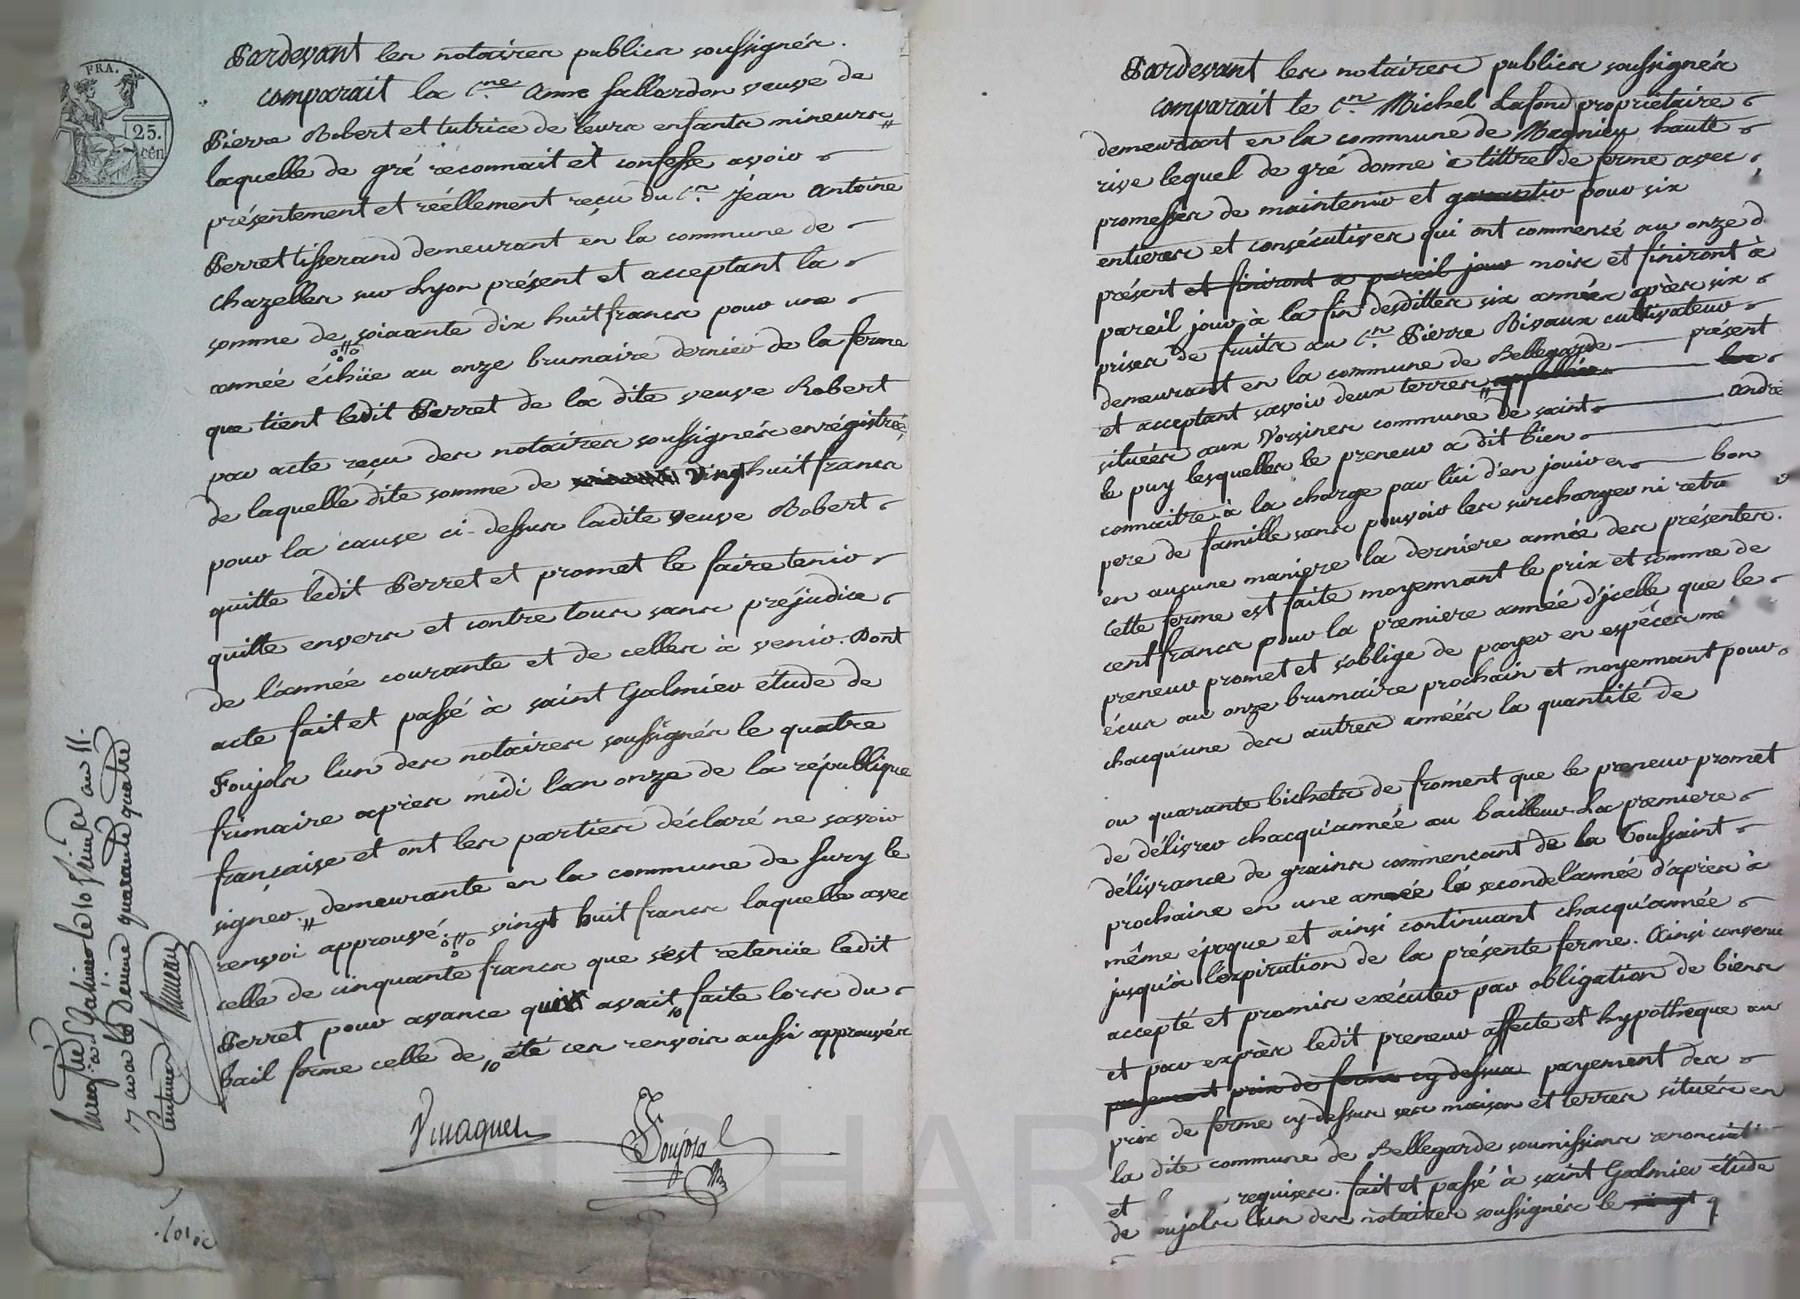 FRA.
25.
cen
Pardevant les notaires publics soussignés.
comparait la C.ne Anne Sallardon veuve de
Pierre Robert et tutrice de leurs enfants mineurs
laquelle de gré reconnait et confesse avoir
présentement et réellement reçu du C.en Jean Antoine
Perret tisserand demeurant en la commune de
Chazelles sur Lyon présent et acceptant la
somme de soixante dix huit francs pour une
année échüe au onze brumaire dernier de la ferme
que tient ledit Perret de la dite veuve Robert
par acte reçu des notaires soussignés enrégistré,
de laquelle dite somme de vingt huit francs
pour la cause ci-dessus ladite veuve Robert
quitte ledit Perret et promet le faire tenir
quitte envers et contre tous sans préjudice
de l'année courante et de celles à venir. Dont
acte fait et passé à saint Galmier étude de
Foujols l'un des notaires soussignés le quatre
frimaire après midi l'an onze de la république
française et ont les parties déclaré ne savoir
signer. demeurante en la commune de Sury le
renvoi approuvé. vingt huit francs laquelle avec
celle de cinquante francs que s'est retenüe ledit
Perret pour avance qui avait faite lors du
bail forme celle de été ces renvois aussi approuvés
Vinagues
Foujols
Enregistré à S. Galmier le 10 frimaire an 11.
quarante quatre
centimes
Pardevant les notaires publics soussignés
comparait le C.en Michel Lafond propriétaire
demeurant en la commune de Magnieu haute
rive lequel de gré donne à tittre de ferme avec
promesses de maintenir et garantir pour six
entieres et consécutives qui ont commencé au onze d
présent et finiront a pareil jour mois et finiront à
pareil jour à la fin desdittes six années après six
prises de fruits au C.en Pierre Rivaux cultivateur
demeurant en la commune de Bellegarde présent
et acceptant savoir deux terres appellées les
situées aux Vorsines commune de saint andré
le puy lesquelles le preneur a dit bien
connaitre à la charge par lui d'en jouir en bon
pere de famille sans pouvoir les surcharger ni retra
en aucune maniere la derniere année des présentes.
Cette ferme est faite moyennant le prix et somme de
cent francs pour la premiere année d'jcelle que le
preneur promet et s'oblige de payer en espéces
écus au onze brumaire prochain et moyennant pour
chacqu'une des autres années la quantité de
ou quarante bichets de froment que le preneur promet
de délivrer chacqu'année au bailleur. La premiere
délivrance de grains commencant de la Toussaint
prochaine en une année la seconde l'année d'après à
même époque et ainsi continuant chacqu'année
jusqu'à l'expiration de la présente ferme. Ainsi convenu
accepté et promis exécuter par obligation de biens
et par exprès ledit preneur affecte et hypothèque au
payement prix de ferme cy dessus payement des
prix de ferme cy-dessus ses maison et terres situés en
la dite commune de Bellegarde soumissions renonciati
et requises. fait et passé à saint Galmier étude
de oujols l'un des notaires soussignés le vingt